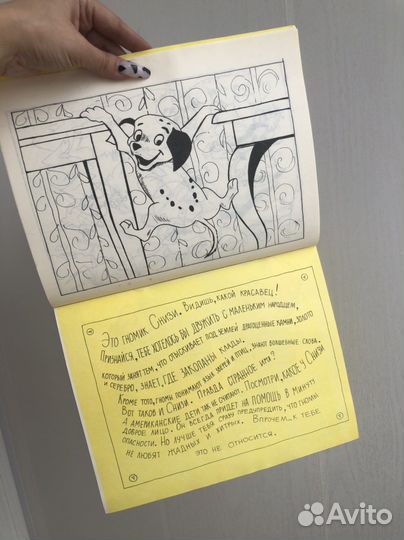 Это гномик Снизи. Видишь, какой красавец!
Признайся, тебе хотелось бы дружить с маленьким народцем,
который занят тем, что отыскивает под землей драгоценные камни, золото
и серебро, знает, где закопаны клады.
Кроме того, гномы понимают язык зверей и птиц, знают волшебные слова.
Вот таков и Снизи. Правда странное имя?
А американские дети так не считают. Посмотри, какое у Снизи
доброе лицо. Он всегда придет на помощь в минуту
опасности. Но лучше тебя сразу предупредить, что гномы
не любят жадных и хитрых. Впрочем, к тебе
это не относится.
Avito